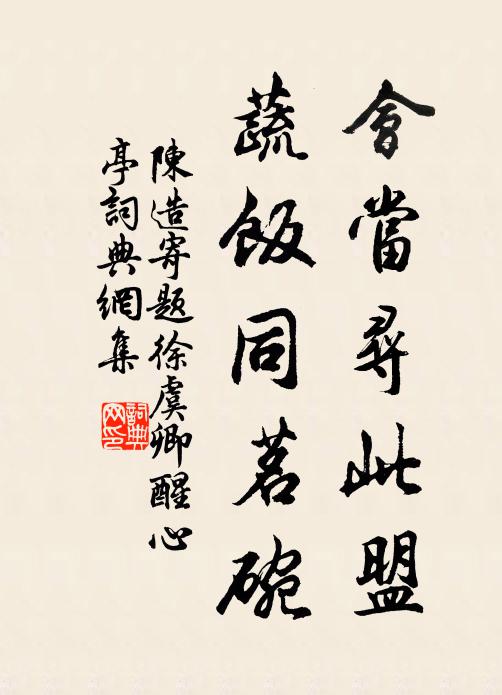 會當尋此盟
蔬飯同茗碗
陳造寄題徐虞卿醒心
亭詞典網集
詞典
网印